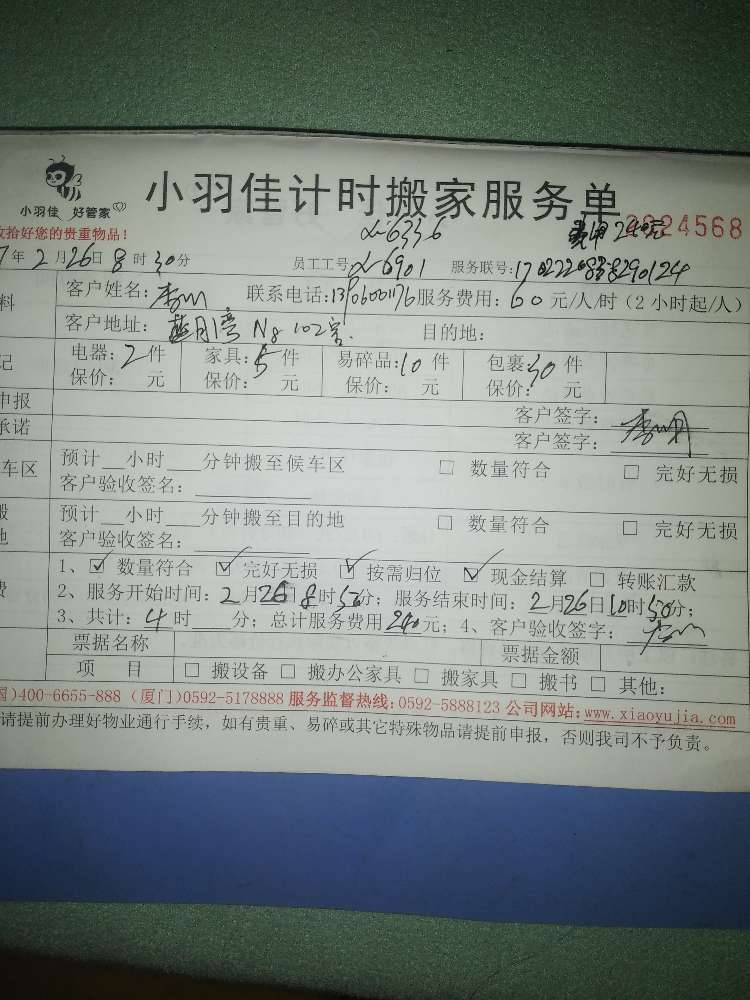 小羽佳 好管家
小羽佳计时搬家服务单
2024568
收拾好您的贵重物品！
费用240元
6336
7年2月26日8时30分 员工工号: 6901 服务联号:
料
客户姓名: 联系电话:13906000176 服务费用: 60 元/人/时（2小时起/人）
客户地址: 蓝月湾 N8 102室. 目的地:
记
电器: 2件 家具: 5件 易碎品: 10件 包裹: 30件
保价: 元 保价: 元 保价: 元 保价: 元
申报 客户签字:
承诺 客户签字:
车区
预计__小时___分钟搬至候车区 □ 数量符合 □ 完好无损
客户验收签名:
搬
地
预计__小时___分钟搬至目的地 □ 数量符合 □ 完好无损
客户验收签名:
费
1、☑ 数量符合 ☑ 完好无损 ☑ 按需归位 ☑ 现金结算 □ 转账汇款
2、服务开始时间: 2月26日8时50分; 服务结束时间: 2月26日10时50分;
3、共计: 4时 分; 总计服务费用 240元; 4、客户验收签字:
票据名称 票据金额
项 目 □ 搬设备 □ 搬办公家具 □ 搬家具 □ 搬书 □ 其他:
国)400-6655-888 (厦门)0592-5178888 服务监督热线:0592-5888123 公司网站:www.xiaoyujia.com
请提前办理好物业通行手续，如有贵重、易碎或其它特殊物品请提前申报，否则我司不予负责。